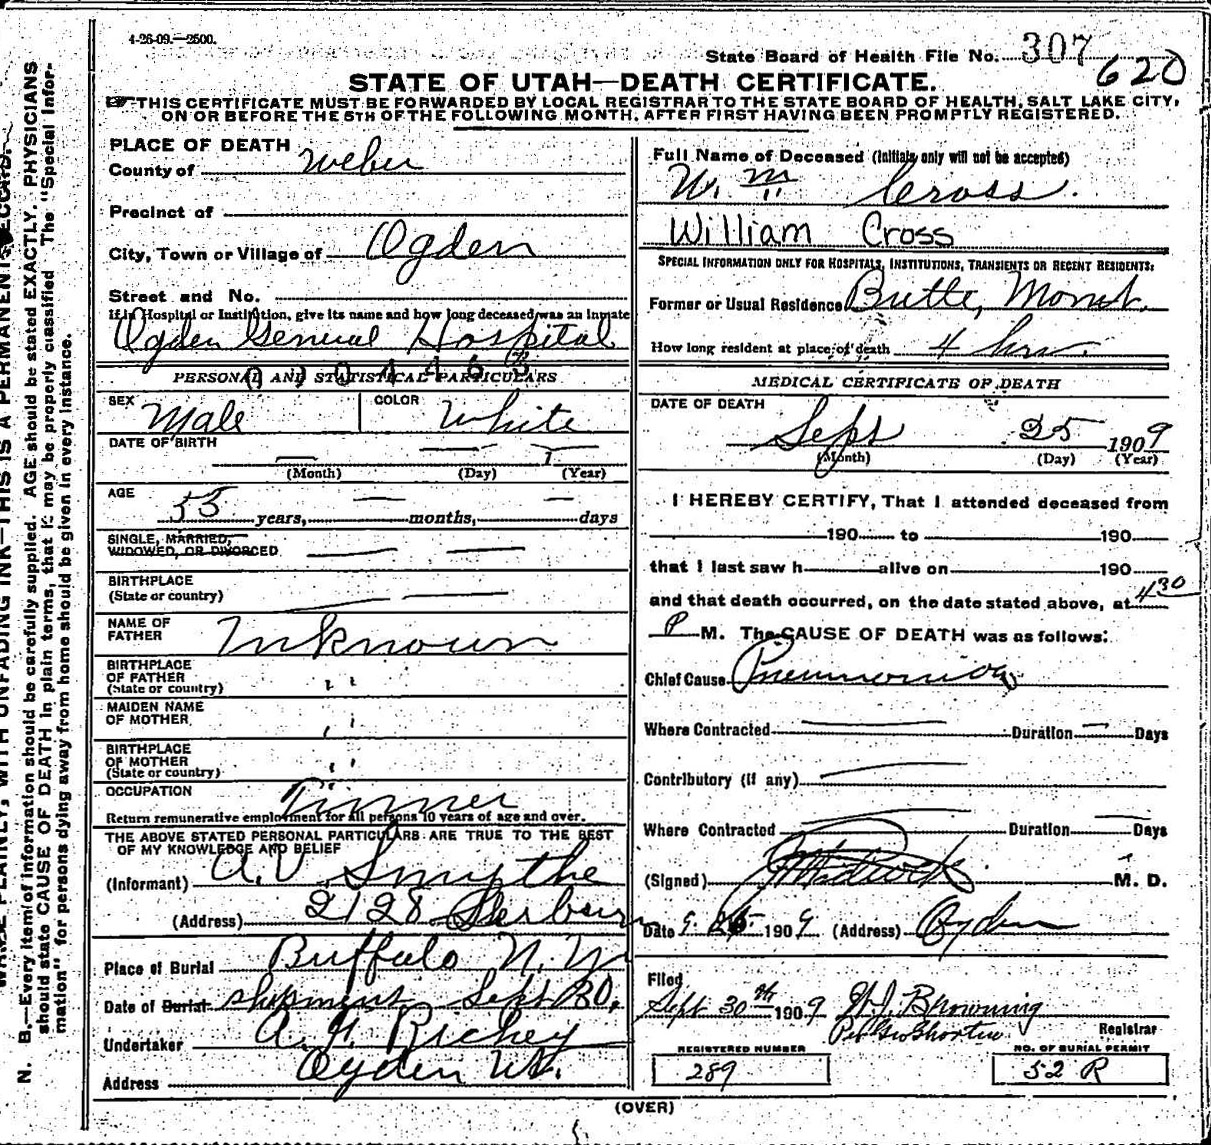 4-26-09.—2500.
State Board of Health File No. 307
620
STATE OF UTAH—DEATH CERTIFICATE.
THIS CERTIFICATE MUST BE FORWARDED BY LOCAL REGISTRAR TO THE STATE BOARD OF HEALTH, SALT LAKE CITY,
ON OR BEFORE THE 5TH OF THE FOLLOWING MONTH, AFTER FIRST HAVING BEEN PROMPTLY REGISTERED.
PLACE OF DEATH
County of Weber
Precinct of
City, Town or Village of Ogden
Street and No.
If in Hospital or Institution, give its name and how long deceased was an inmate
Ogden General Hospital
PERSONAL AND STATISTICAL PARTICULARS
SEX Male COLOR White
DATE OF BIRTH
(Month) (Day) (Year)
AGE
55 years, months, days
SINGLE, MARRIED,
WIDOWED, OR DIVORCED
BIRTHPLACE
(State or country)
NAME OF
FATHER Unknown
BIRTHPLACE
OF FATHER
(State or country) " "
MAIDEN NAME
OF MOTHER "
BIRTHPLACE
OF MOTHER
(State or country) " "
OCCUPATION Tinner
Return remunerative employment for all persons 10 years of age and over.
THE ABOVE STATED PERSONAL PARTICULARS ARE TRUE TO THE BEST
OF MY KNOWLEDGE AND BELIEF
(Informant) A.V. Smythe
(Address) 2128
Place of Burial Buffalo N.Y.
Date of Burial shipment Sept 30,
Undertaker A. Richey
Address Ogden Ut.
Full Name of Deceased (Initials only will not be accepted)
Wm Cross.
William Cross
SPECIAL INFORMATION ONLY FOR HOSPITALS, INSTITUTIONS, TRANSIENTS OR RECENT RESIDENTS:
Former or Usual Residence Butte, Mont.
How long resident at place of death 4 hrs.
MEDICAL CERTIFICATE OF DEATH
DATE OF DEATH
Sept 25 1909
(Month) (Day) (Year)
I HEREBY CERTIFY, That I attended deceased from
190 to 190
that I last saw h alive on 190
and that death occurred, on the date stated above, at 4 30
P M. The CAUSE OF DEATH was as follows:
Chief Cause Pneumonia
Where Contracted Duration Days
Contributory (if any)
Where Contracted Duration Days
(Signed) M. D.
Date 9. 190 9 (Address) Ogden
Filed
Sept 30th 190 9 Browning
Per Geo Shorten Registrar
REGISTERED NUMBER
289
NO. OF BURIAL PERMIT
52 R
(OVER)
N. B.—Every item of information should be carefully supplied. AGE should be stated EXACTLY. PHYSICIANS
should state CAUSE OF DEATH in plain terms, that it may be properly classified. The "Special Infor-
mation" for persons dying away from home should be given in every instance.